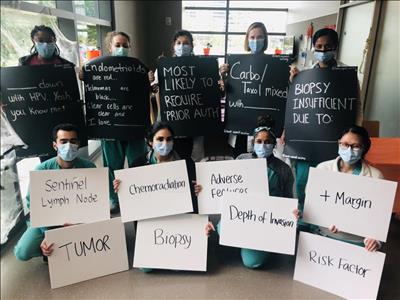 ____ down
with HPV. Yeah,
you know me!
Endometrioids
are red,
Melanomas are
black...
Clear cells are
clear and
I love ____.
MOST LIKELY
to REQUIRE
PRIOR AUTH
Carbo/
Taxol mixed
with ____.
BIOPSY
INSUFFICIENT
DUE TO:
Sentinel
Lymph NODE
Chemoradiation
Adverse
Features
Depth OF INVASION
+ Margin
TUMOR
Biopsy
RISK FACTOR